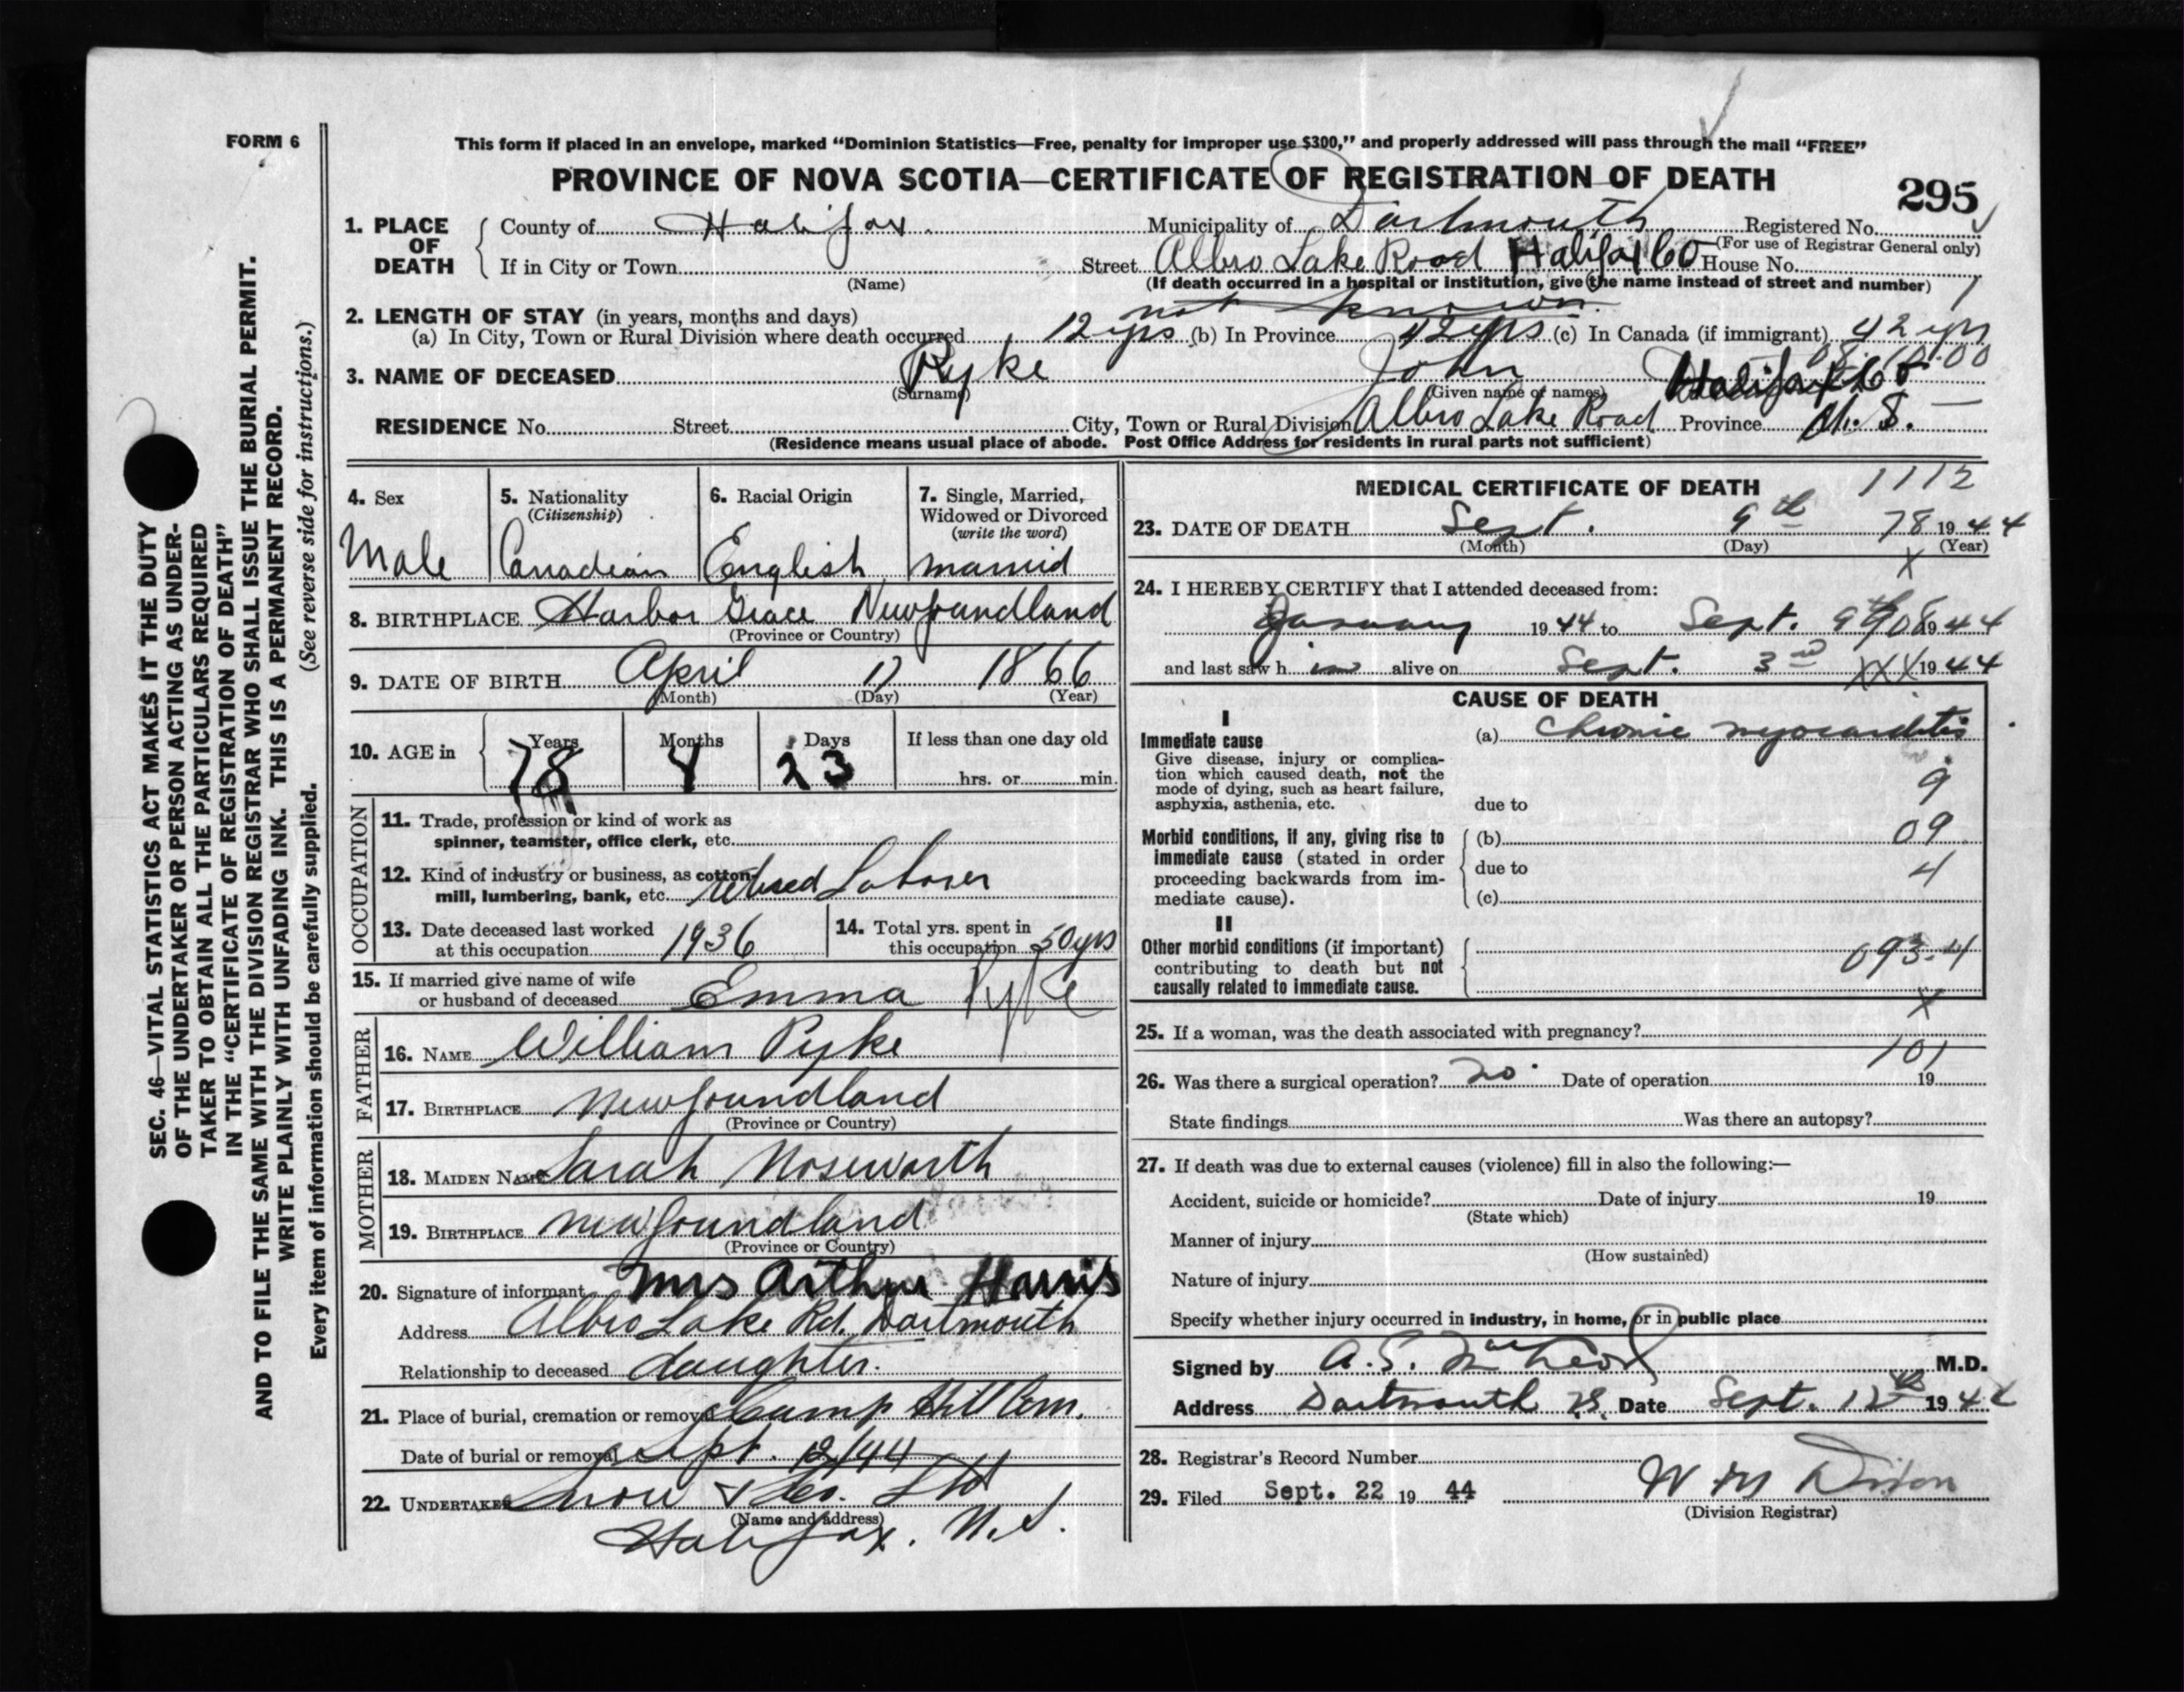 FORM 6
This form if placed in an envelope, marked “Dominion Statistics—Free, penalty for improper use $300,” and properly addressed will pass through the mail “FREE”
PROVINCE OF NOVA SCOTIA—CERTIFICATE OF REGISTRATION OF DEATH
295
1. PLACE OF DEATH
County of Halifax. Municipality of Dartmouth Registered No.
(For use of Registrar General only)
If in City or Town Street Albro Lake Road Halifax Co House No.
(Name)
(If death occurred in a hospital or institution, give the name instead of street and number) 1
not known
2. LENGTH OF STAY (in years, months and days)
(a) In City, Town or Rural Division where death occurred 12 yrs (b) In Province 42 yrs (c) In Canada (if immigrant) 42 yrs
3. NAME OF DECEASED Pyke John
(Surname) (Given name or names)
Halifax Co
RESIDENCE No. Street City, Town or Rural Division Albro Lake Road Province N. S.
(Residence means usual place of abode. Post Office Address for residents in rural parts not sufficient)
4. Sex
Male
5. Nationality
(Citizenship)
Canadian
6. Racial Origin
English
7. Single, Married, Widowed or Divorced
(write the word)
married
8. BIRTHPLACE Harbor Grace Newfoundland
(Province or Country)
9. DATE OF BIRTH April 17 1866
(Month) (Day) (Year)
10. AGE in
Years Months Days If less than one day old
78 4 23 hrs. or min.
OCCUPATION
11. Trade, profession or kind of work as
spinner, teamster, office clerk, etc.
12. Kind of industry or business, as cotton-
mill, lumbering, bank, etc. retired Laborer
13. Date deceased last worked
at this occupation 1936
14. Total yrs. spent in
this occupation 50 yrs
15. If married give name of wife
or husband of deceased Emma Pyke
FATHER
16. NAME William Pyke
17. BIRTHPLACE Newfoundland
(Province or Country)
MOTHER
18. MAIDEN NAME Sarah Noseworth
19. BIRTHPLACE Newfoundland
(Province or Country)
20. Signature of informant Mrs Arthur Harris
Address Albro Lake Rd. Dartmouth
Relationship to deceased daughter.
21. Place of burial, cremation or removal Camp Hill Cem.
Date of burial or removal Sept. 12/44
22. UNDERTAKER Snow & Co. Ltd
(Name and address)
Halifax. N.S.
MEDICAL CERTIFICATE OF DEATH 1112
23. DATE OF DEATH Sept. 9th 78 1944
(Month) (Day) (Year)
X
24. I HEREBY CERTIFY that I attended deceased from:
January 1944 to Sept. 9th 1944
and last saw h im alive on Sept. 3rd XXX 1944
CAUSE OF DEATH
I
Immediate cause
Give disease, injury or complica-
tion which caused death, not the
mode of dying, such as heart failure,
asphyxia, asthenia, etc.
(a) Chronic myocarditis
9
due to
Morbid conditions, if any, giving rise to
immediate cause (stated in order
proceeding backwards from im-
mediate cause).
(b) 09
due to 4
(c)
II
Other morbid conditions (if important)
contributing to death but not
causally related to immediate cause.
093-4
X
25. If a woman, was the death associated with pregnancy?
101
26. Was there a surgical operation? no. Date of operation 19
State findings Was there an autopsy?
27. If death was due to external causes (violence) fill in also the following:—
Accident, suicide or homicide? Date of injury 19
(State which)
Manner of injury
(How sustained)
Nature of injury
Specify whether injury occurred in industry, in home, or in public place
Signed by A. S. McLeod M.D.
Address Dartmouth N.S. Date Sept. 12th 1944
28. Registrar's Record Number
29. Filed Sept. 22 19 44 W M Dixon
(Division Registrar)
SEC. 46—VITAL STATISTICS ACT MAKES IT THE DUTY
OF THE UNDERTAKER OR PERSON ACTING AS UNDER-
TAKER TO OBTAIN ALL THE PARTICULARS REQUIRED
IN THE “CERTIFICATE OF REGISTRATION OF DEATH”
AND TO FILE THE SAME WITH THE DIVISION REGISTRAR WHO SHALL ISSUE THE BURIAL PERMIT.
WRITE PLAINLY WITH UNFADING INK. THIS IS A PERMANENT RECORD.
Every item of information should be carefully supplied. (See reverse side for instructions.)